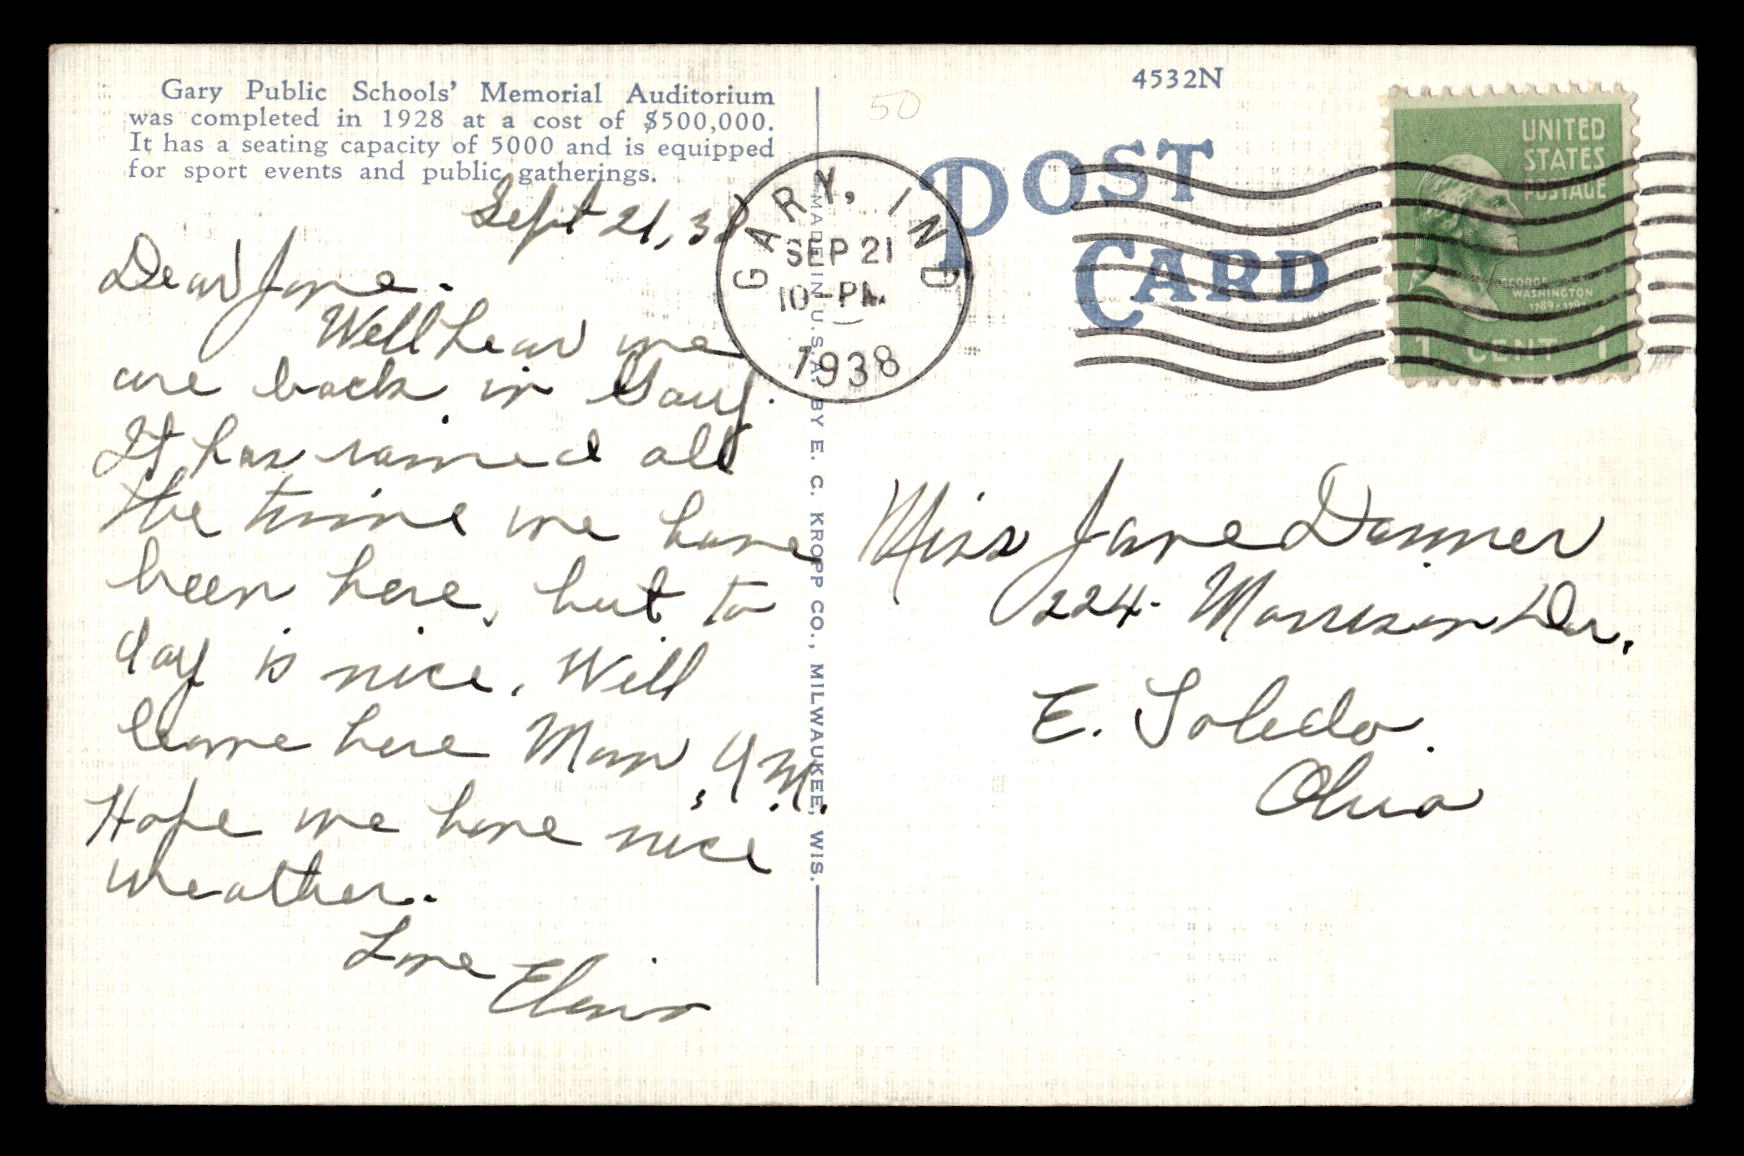 Gary Public Schools' Memorial Auditorium
was completed in 1928 at a cost of $500,000.
It has a seating capacity of 5000 and is equipped
for sport events and public gatherings.
Sept 21, 38
Dear Jane.
Well hear we
are back in Gary.
It has rained all
the time we have
been here, but to
day is nice. Will
leave here Mon, A.M.
Hope we have nice
weather.
Love
MADE IN U.S.A. BY E. C. KROPP CO., MILWAUKEE, WIS.
50
4532N
POST
CARD
GARY, IND
SEP 21
10-PM
1938
UNITED
STATES
POSTAGE
GEORGE
WASHINGTON
1789-1797
1 CENT 1
Miss Jane Danner
224- Morrison Dr.
E. Toledo.
Ohio